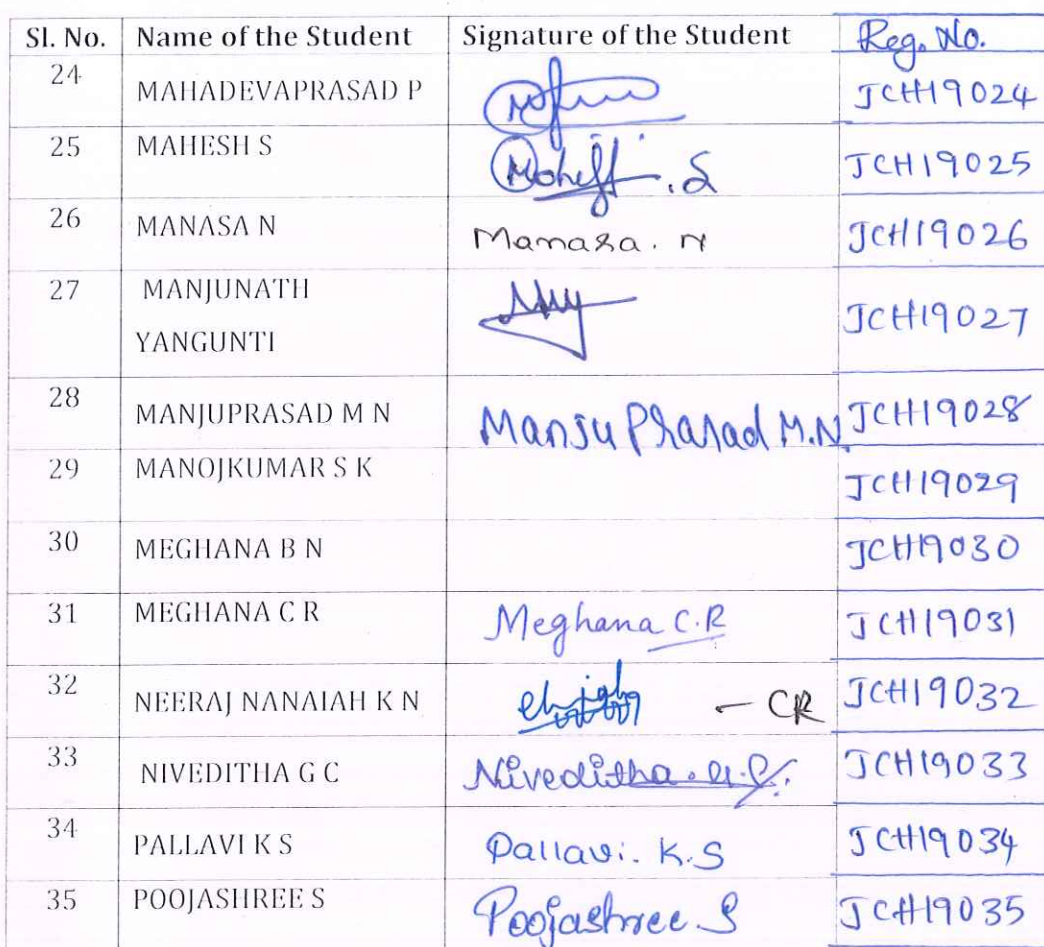 Sl. No. Name of the Student Signature of the Student Reg. No.
24 MAHADEVAPRASAD P JCH19024
25 MAHESH S Mahesh.S JCH19025
26 MANASA N Manasa. N JCH19026
27 MANJUNATH
YANGUNTI JCH19027
28 MANJUPRASAD M N Manju Prasad M.N JCH19028
29 MANOJKUMAR S K JCH19029
30 MEGHANA B N JCH19030
31 MEGHANA C R Meghana C.R JCH19031
32 NEERAJ NANAIAH K N - CR JCH19032
33 NIVEDITHA G C Niveditha.G.C. JCH19033
34 PALLAVI K S Pallavi. K.S JCH19034
35 POOJASHREE S Poojashree S JCH19035